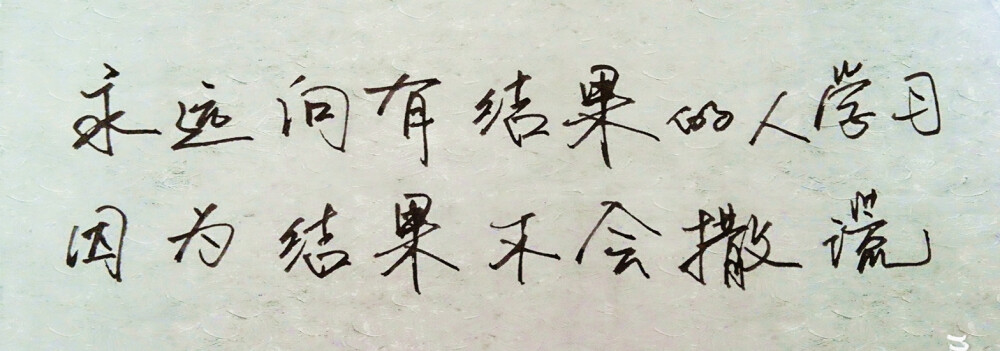 永远向有结果的人学习
因为结果不会撒谎